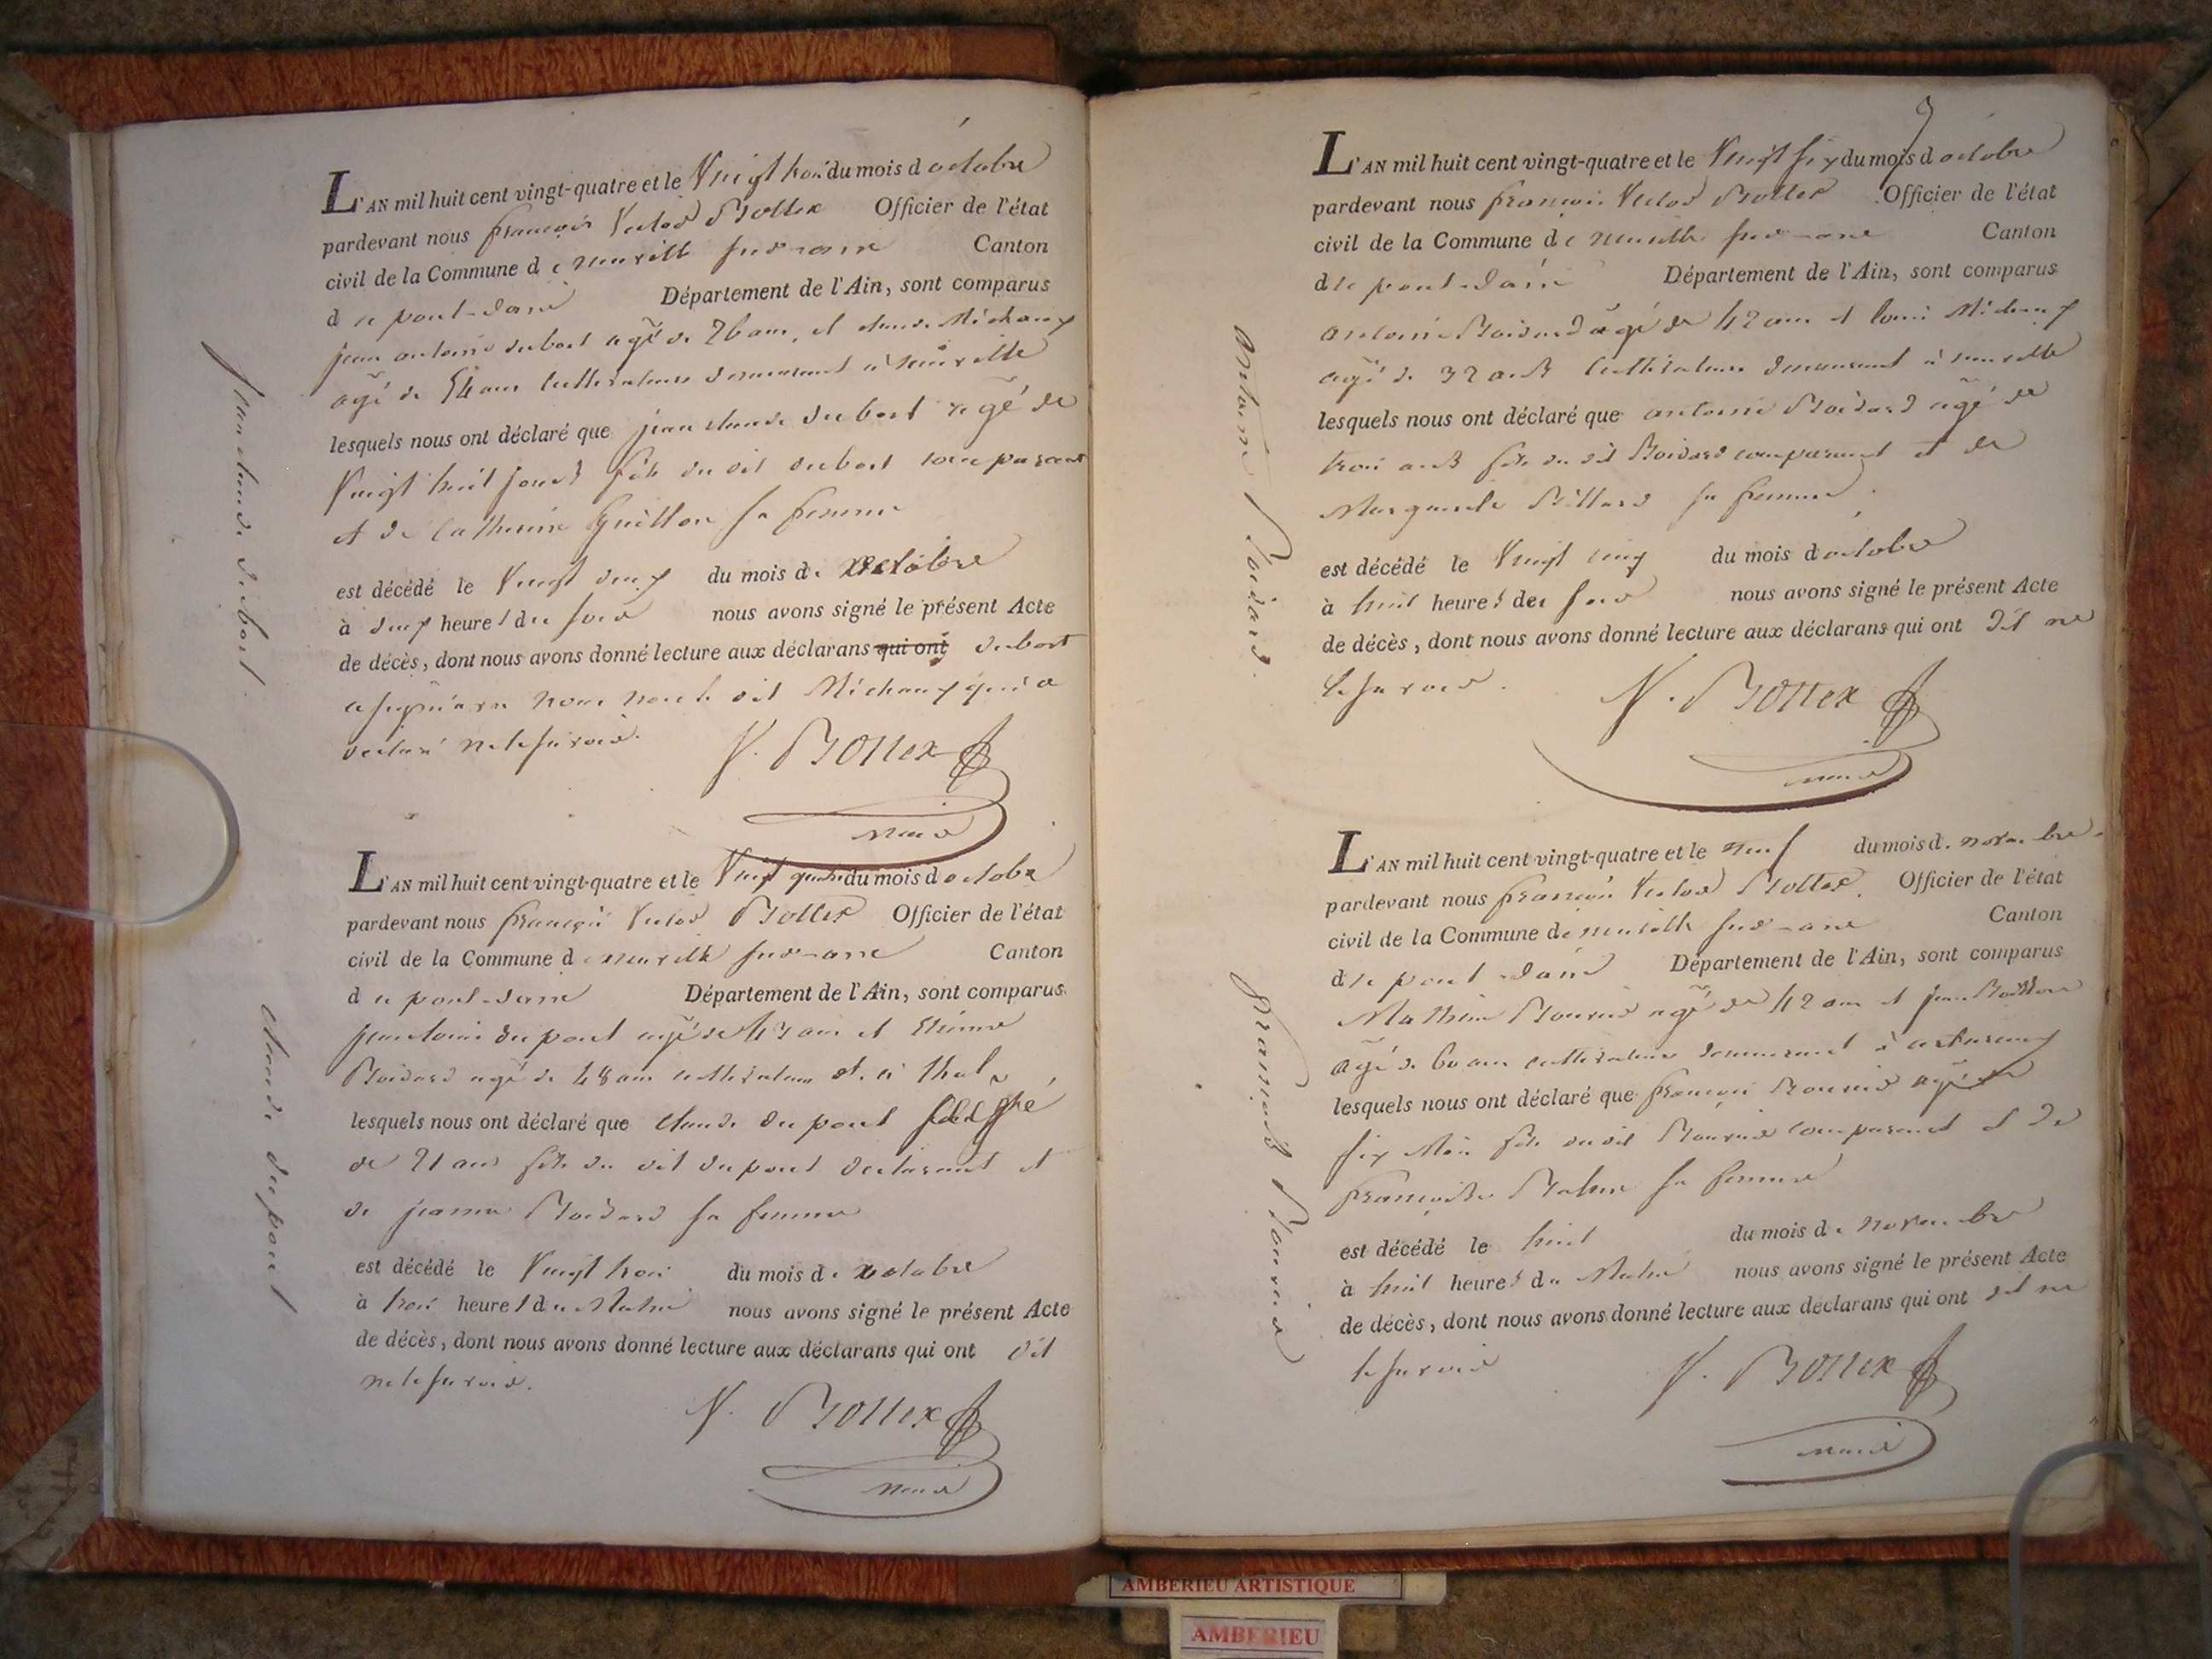 L'AN mil huit cent vingt-quatre et le Vingt trois du mois d octobre
pardevant nous françois Victor Bottex Officier de l'état
civil de la Commune de neuville sur-ain Canton
de pont-dain Département de l'Ain, sont comparus
jean antoine dubost agé de 26 ans, et claude Michaux
agé de 54 ans cultivateurs demeurant à neuville
lesquels nous ont déclaré que jean claude dubost agé de
Vingt huit jours fils du dit dubost comparant
et de Catherine Guillon sa femme
est décédé le Vingt deux du mois de octobre
à deux heures du soir nous avons signé le présent Acte
de décès, dont nous avons donné lecture aux déclarans qui ont dubost
a signé avec nous non le dit Michaux qui a
déclaré ne le savoir.
V. Bottex
maire
jean claude dubost
L'AN mil huit cent vingt-quatre et le Vingt quatre du mois d octobre
pardevant nous françois Victor Bottex Officier de l'état
civil de la Commune de neuville sur-ain Canton
de pont-dain Département de l'Ain, sont comparus
dupont agé de 43 ans et Etienne
Boidard agé de 48 ans cultivateurs
lesquels nous ont déclaré que claude dupont agé
de 21 ans fils du dit dupont declarant et
de jeanne Boidard sa femme
est décédé le Vingt trois du mois de octobre
à trois heures du Matin nous avons signé le présent Acte
de décès, dont nous avons donné lecture aux déclarans qui ont dit
ne le savoir.
V. Bottex
maire
claude dupont
9
L'AN mil huit cent vingt-quatre et le Vingt six du mois d octobre
pardevant nous françois Victor Bottex Officier de l'état
civil de la Commune de neuville sur-ain Canton
de pont-dain Département de l'Ain, sont comparus
antoine Boidard agé de 42 ans et louis Michaux
agé de 32 ans cultivateurs demeurant à neuville
lesquels nous ont déclaré que antoine Boidard agé de
trois ans fils du dit Boidard comparant et de
Marguerite Billard sa femme
est décédé le Vingt cinq du mois d octobre
à huit heures de soir nous avons signé le présent Acte
de décès, dont nous avons donné lecture aux déclarans qui ont dit ne
le savoir.
V. Bottex
maire
antoine Boidard.
L'AN mil huit cent vingt-quatre et le neuf du mois de novembre
pardevant nous françois Victor Bottex Officier de l'état
civil de la Commune de neuville sur-ain Canton
de pont-dain Département de l'Ain, sont comparus
Mathieu Bouvier agé de 42 ans et jean
agé de 60 ans cultivateurs demeurant à
lesquels nous ont déclaré que françois Bouvier agé de
six Mois fils du dit Bouvier comparant et de
françoise sa femme
est décédé le huit du mois de novembre
à huit heures du Matin nous avons signé le présent Acte
de décès, dont nous avons donné lecture aux déclarans qui ont dit ne
le savoir
V. Bottex
maire
françois Bouvier
AMBERIEU ARTISTIQUE
AMBERIEU